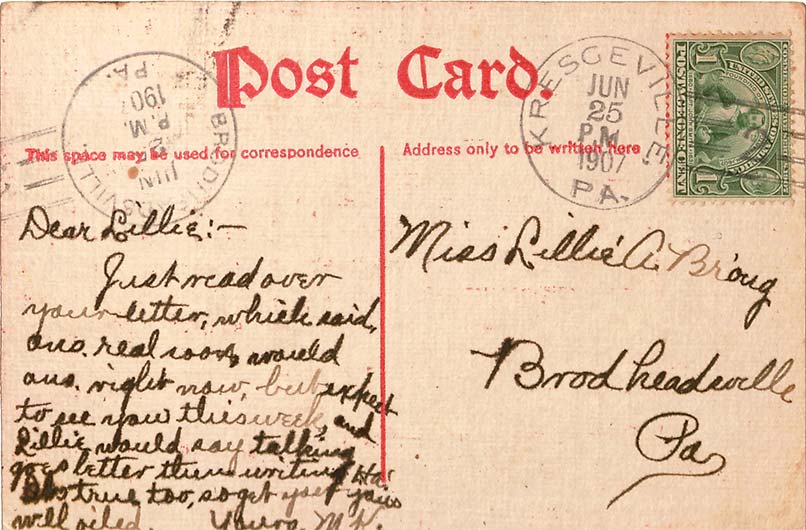 Post Card.
This space may be used for correspondence
Address only to be written here
BRODHEADSVILLE
PA.
JUN
P.M.
1907
KRESGEVILLE,
JUN
25
P.M.
1907
PA.
1
UNITED STATES OF AMERICA
POSTAGE ONE CENT
1
Dear Lillie:-
Just read over
your letter, which said,
ans. real soon, would
ans. right now, but expect
to see you this week, and
Lillie would say talking
goes better then writing Ha!
true too, so get your
well oiled. Yours, M.K.
Miss Lillie A. Broug
Brodheadsville
Pa